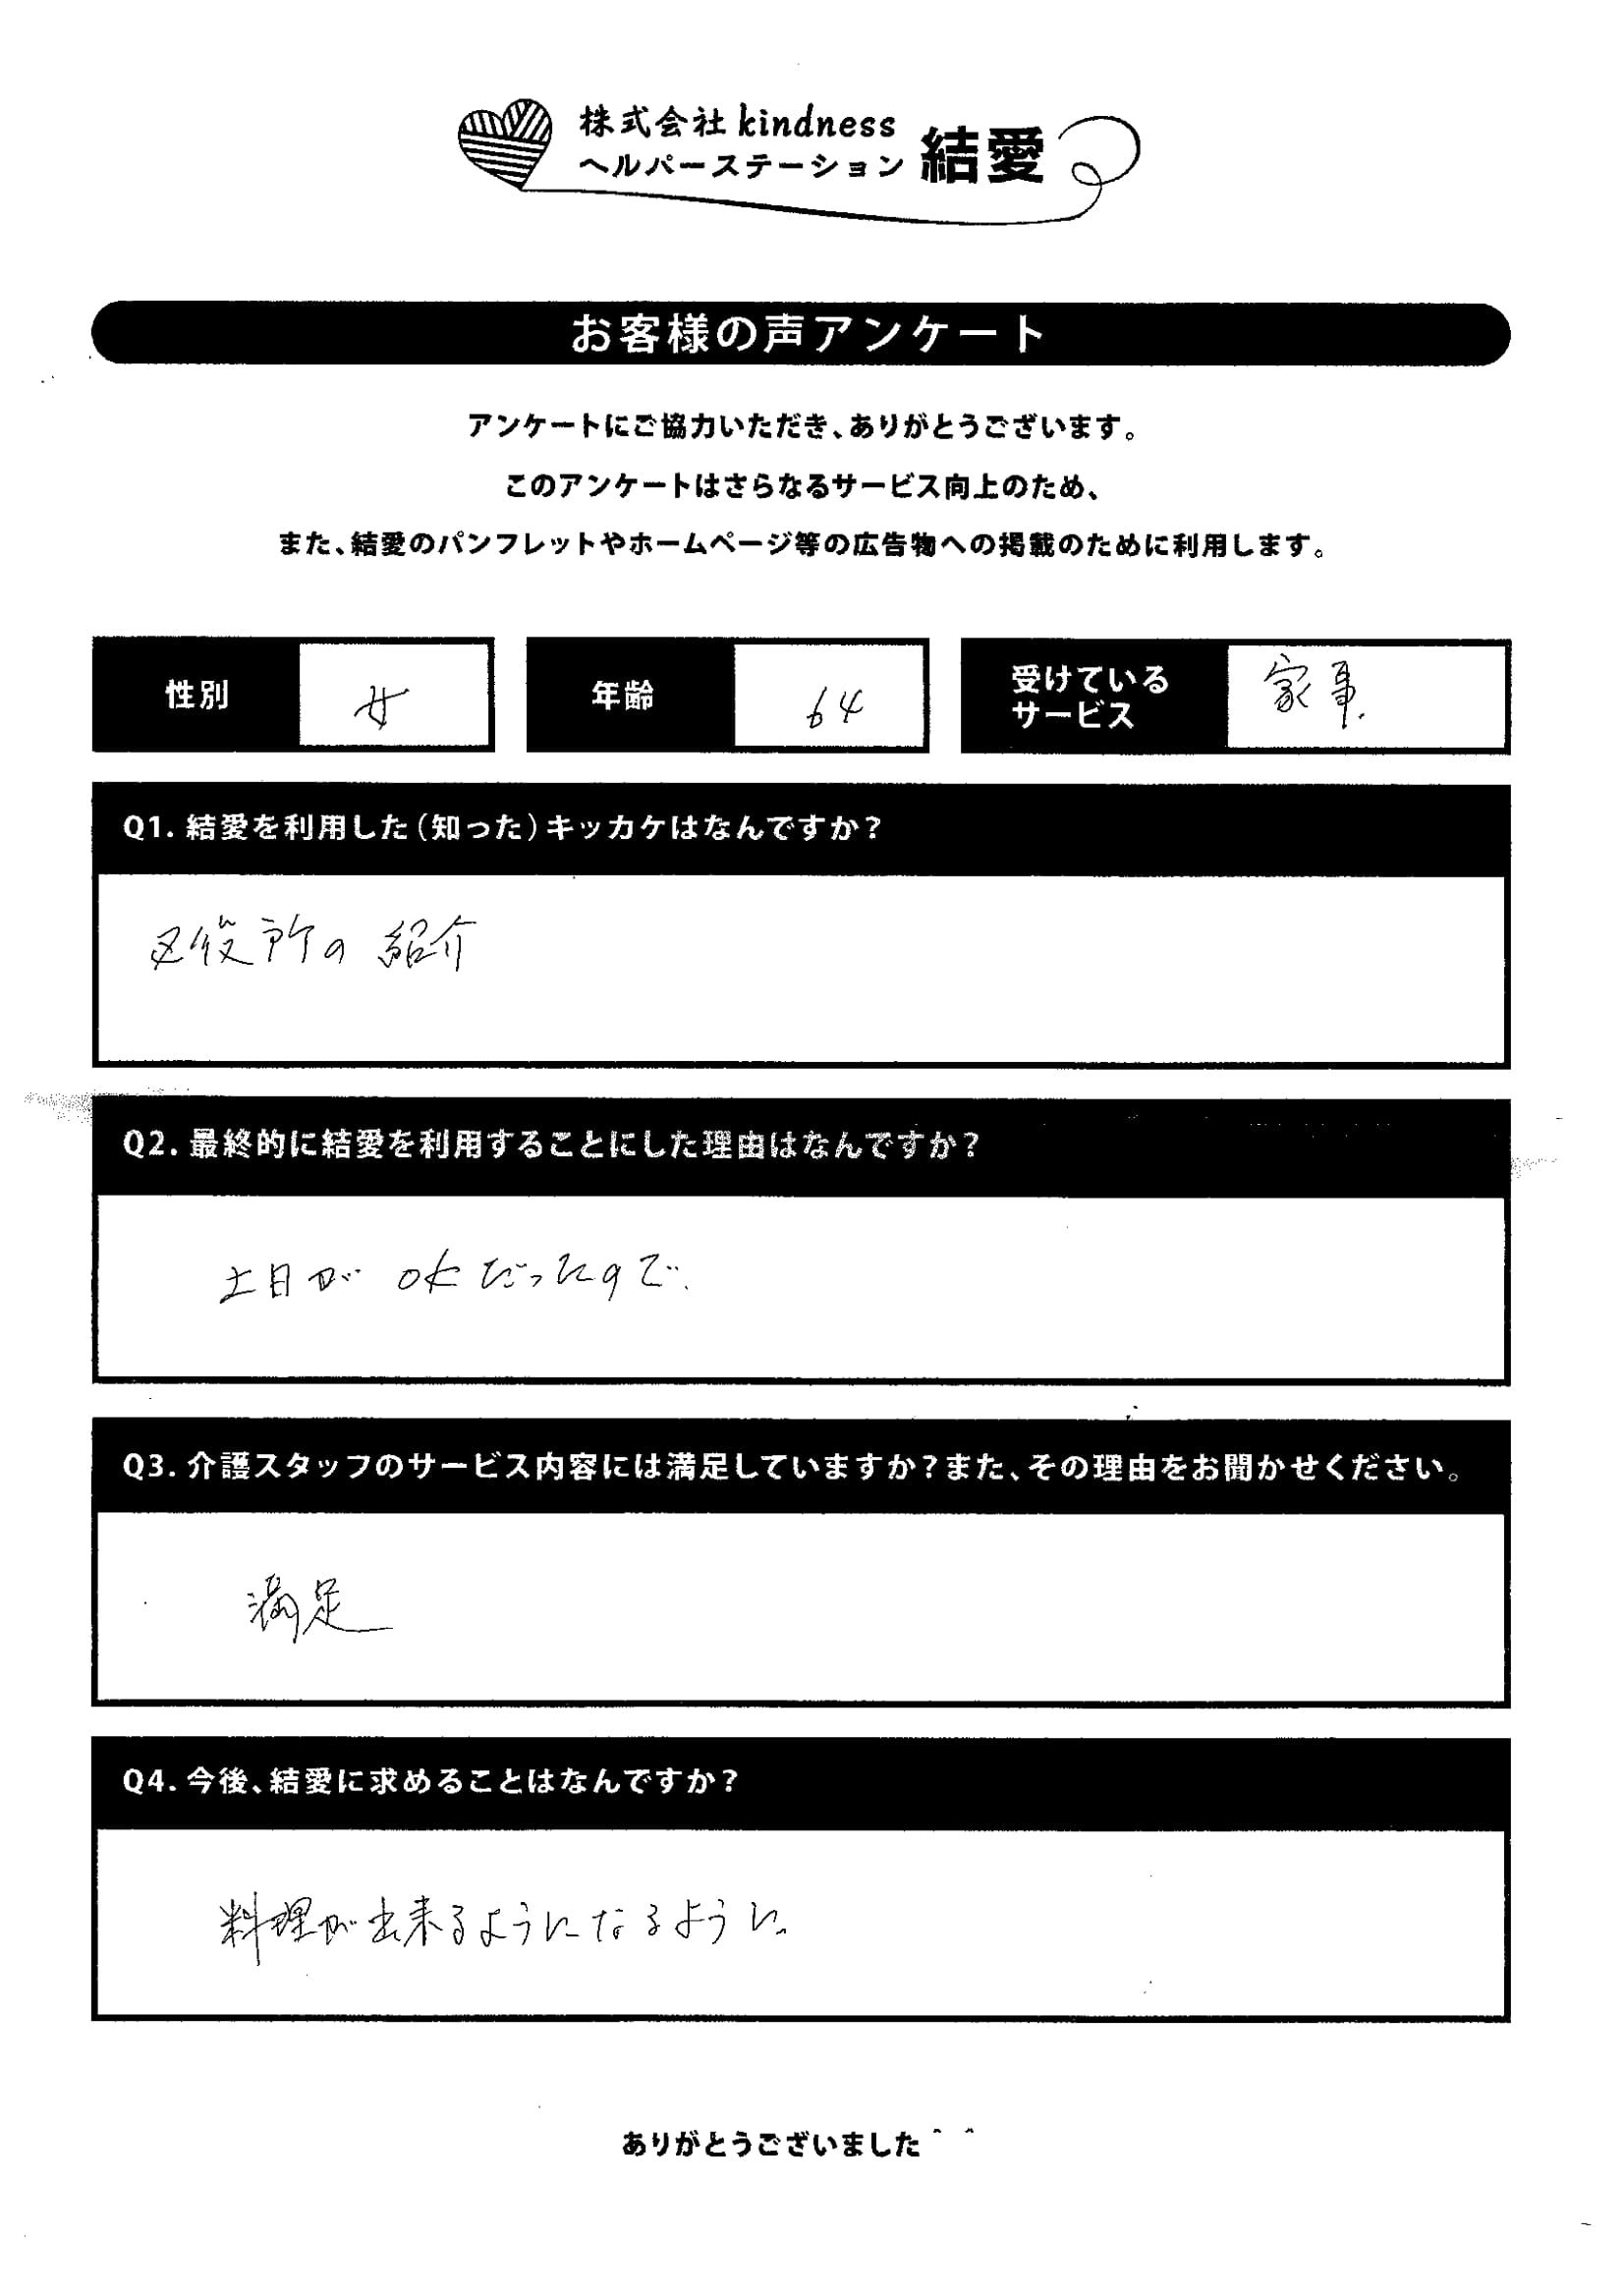 株式会社 kindness
ヘルパーステーション 結愛
お客様の声アンケート
アンケートにご協力いただき、ありがとうございます。
このアンケートはさらなるサービス向上のため、
また、結愛のパンフレットやホームページ等の広告物への掲載のために利用します。
性別 女 年齢 64 受けているサービス 家事.
Q1. 結愛を利用した(知った)キッカケはなんですか?
区役所の紹介
Q2. 最終的に結愛を利用することにした理由はなんですか?
土日がOKだったので.
Q3. 介護スタッフのサービス内容には満足していますか?また、その理由をお聞かせください。
満足
Q4. 今後、結愛に求めることはなんですか?
料理が出来るようになるように。
ありがとうございました^ ^